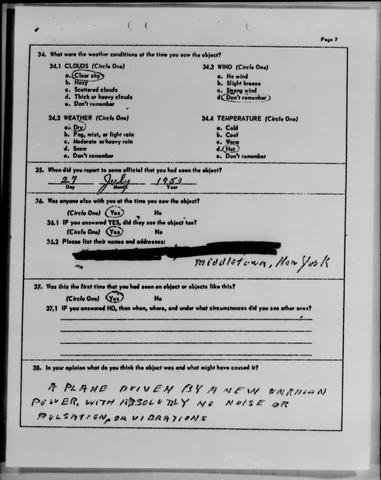 Page 7
34. What were the weather conditions at the time you saw the object?
34.1 CLOUDS (Circle One) 34.2 WIND (Circle One)
a. Clear sky a. No wind
b. Hazy b. Slight breeze
c. Scattered clouds c. Strong wind
d. Thick or heavy clouds d. Don't remember
e. Don't remember
34.3 WEATHER (Circle One) 34.4 TEMPERATURE (Circle One)
a. Dry a. Cold
b. Fog, mist, or light rain b. Cool
c. Moderate or heavy rain c. Warm
d. Snow d. Hot
e. Don't remember e. Don't remember
35. When did you report to some official that you had seen the object?
27 July 1953
Day Month Year
36. Was anyone else with you at the time you saw the object?
(Circle One) Yes No
36.1 IF you answered YES, did they see the object too?
(Circle One) Yes No
36.2 Please list their names and addresses:
Middletown, New York
37. Was this the first time that you had seen an object or objects like this?
(Circle One) Yes No
37.1 IF you answered NO, then when, where, and under what circumstances did you see other ones?
38. In your opinion what do you think the object was and what might have caused it?
A PLANE DRIVEN BY A NEW UNKNOWN
POWER, WITH ABSOLUTLY NO NOISE OR
PULSATION, OR VIBRATIONS